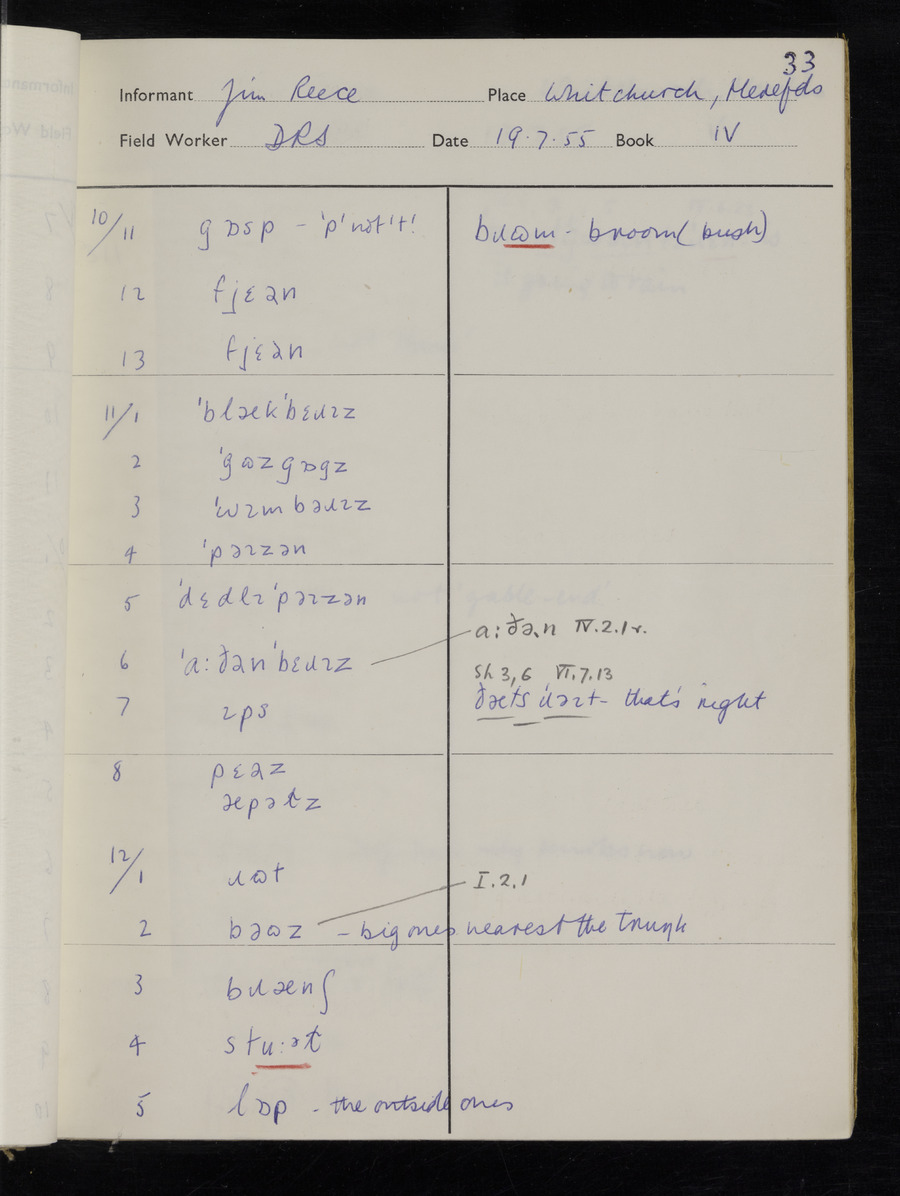 33
Informant Jim Reece Place Whitchurch, Herefds
Field Worker DRS Date 19.7.55 Book IV
10/11 gɒsp - 'p' not 't'! bɹɷm - broom (bush)
12 fjɛən
13 fjɛən
11/1 ˈblækˈbɛɹɪz
2 ˈgɷzgɒgz
3 ˈɪmbəɹɪz
4 ˈpəɪzən
5 ˈdɛdlɪˈpəɪzən
a:ðən IV.2.1r.
6 ˈa:ðənˈbɛɹɪz
Sh 3,6 VI.7.13
7 ɪps ðæts ɹəɪt - that's right
8 pɛəz
æpətz
12/1 ɹɷt
I.2.1
2 bəɷz - big ones nearest the trunk
3 bɹænʃ
4 stu:ət
5 lɒp - the outside ones